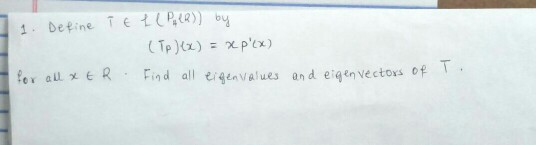 1. Define T ∈ ℒ(P₄(R)) by
(Tp)(x) = x p'(x)
for all x ∈ R. Find all eigenvalues and eigenvectors of T.